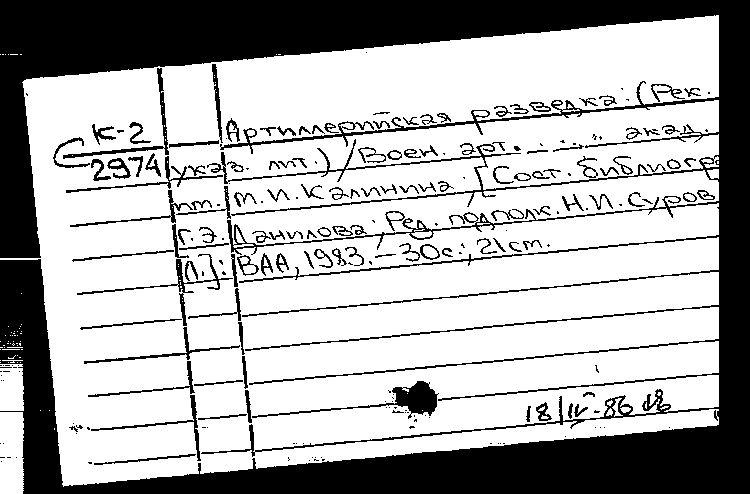 К-2
2974
Артиллерийская разведка: (Рек.
указ. лит.) / Воен. арт. ... акад.
им. М.И. Калинина; [Сост. библиогра
Г.Э. Данилова; Ред. подполк. Н.И. Суров
Л.]: ВАА, 1983. – 30с.; 21см.
18/IV-86